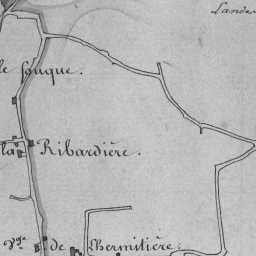 Lande
le Souque.
la Ribardière.
de Lhermitière.